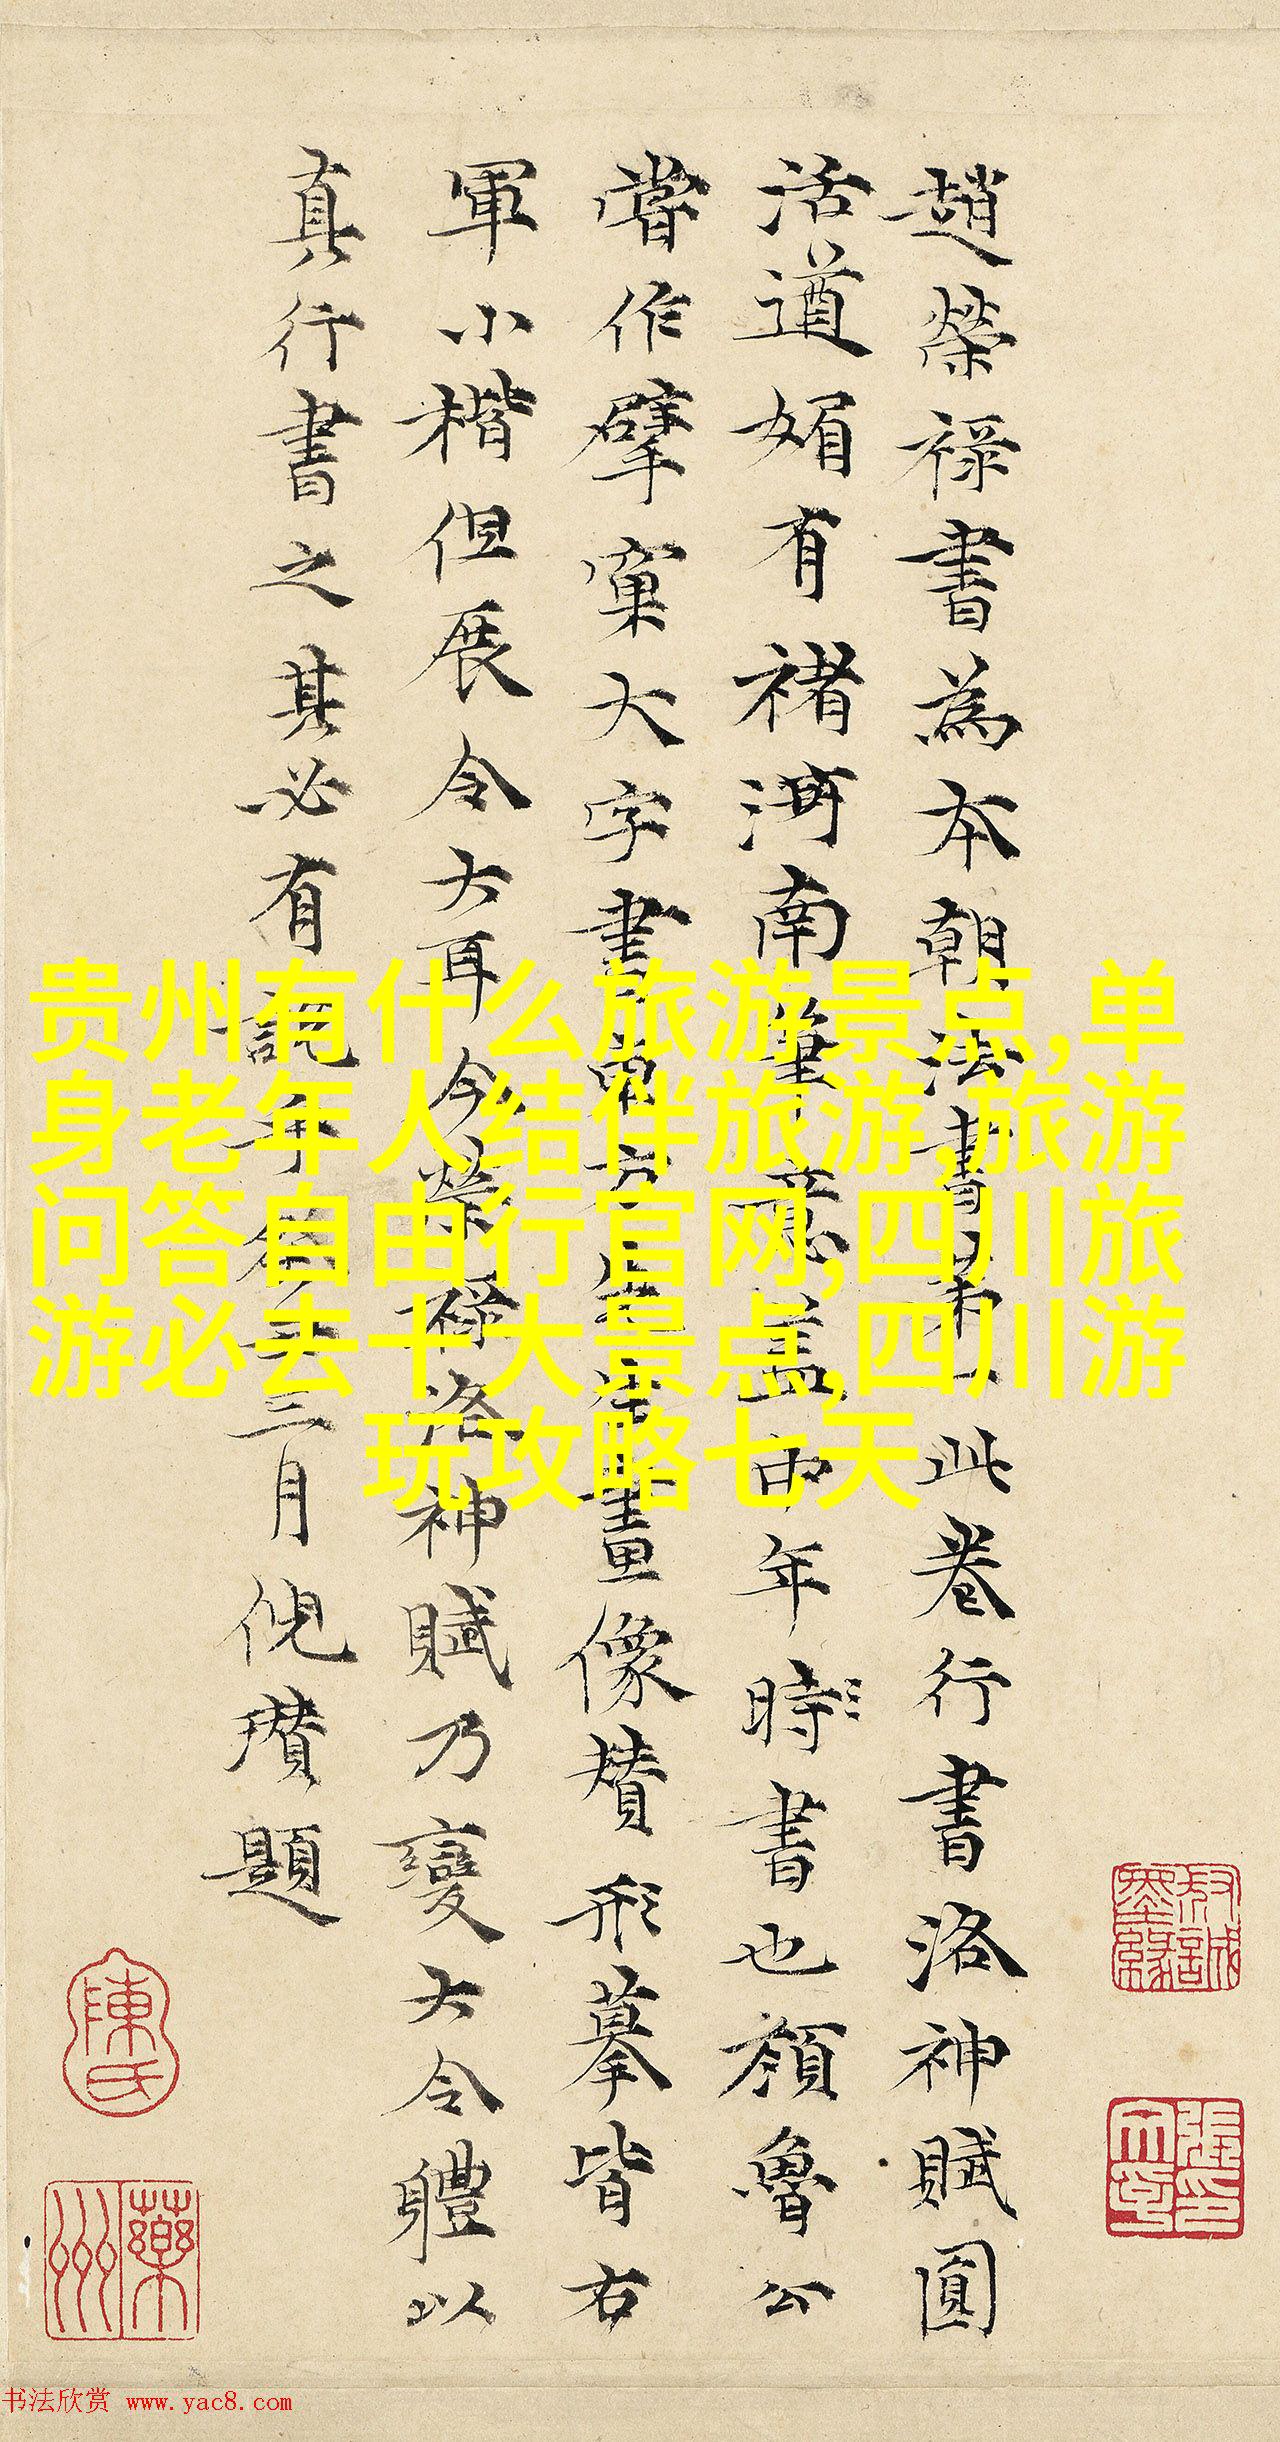 趙榮祿書為本朝法書第一此卷行書洛神賦圓
活遒媚有褚河南筆意蓋中年時書也顏魯公
嘗作擘窠大字書東方生畫像賛形摹皆右
軍小楷但展令大耳今榮祿洛神賦乃變大令體以
真行書之其必有說年三月倪瓚題
贵州有什么旅游景点,单
身老年人结伴旅游,旅游
问答自由行官网,四川旅
游必去十大景点,四川游
玩攻略七天
陳氏
书法欣赏 www.yac8.com